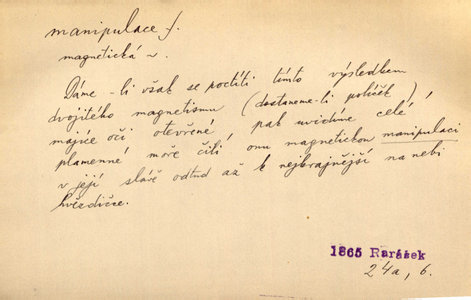 manipulace f.
magnetická ~.
Dáme-li však se poctíti tímto výsledkem
dvojitého magnetismu (dostaneme-li políček),
majíce oči otevřené, pak uvidíme celé
plamenné moře čili onu magnetickou manipulaci
v její slávě odtud až k nejkrajnější na nebi
hvězdičce.
1865 Rarášek
24a, 6.